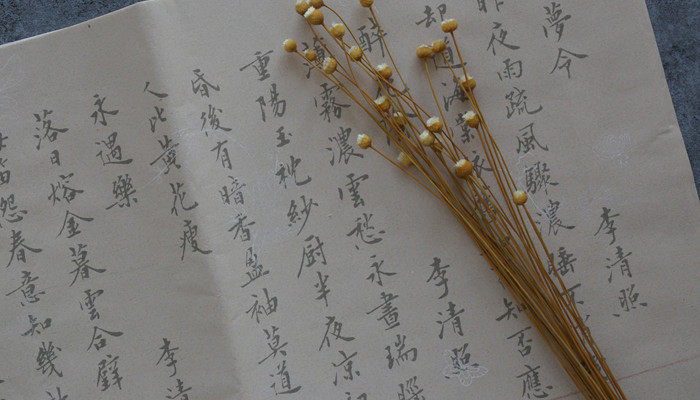 夢令 李清照
昨夜雨疏風驟濃睡不
却道海棠依 知否應
醉 李清照
薄霧濃雲愁永晝瑞腦
重陽玉枕紗厨半夜凉初
昏後有暗香盈袖莫道
人比黃花瘦
永遇樂 李清
落日熔金暮雲合璧
笛怨春意知幾